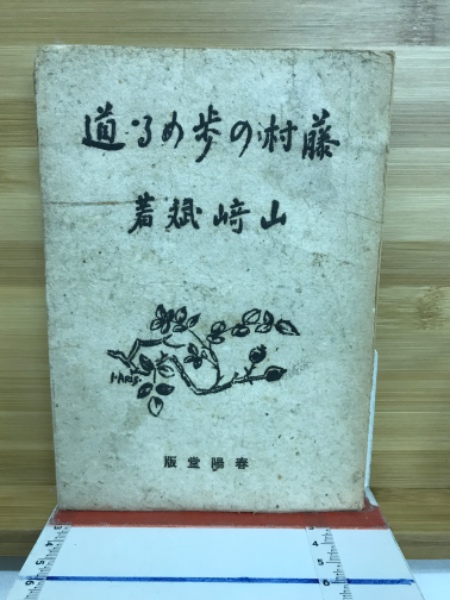 藤村の歩める道
山崎斌著
春陽堂版